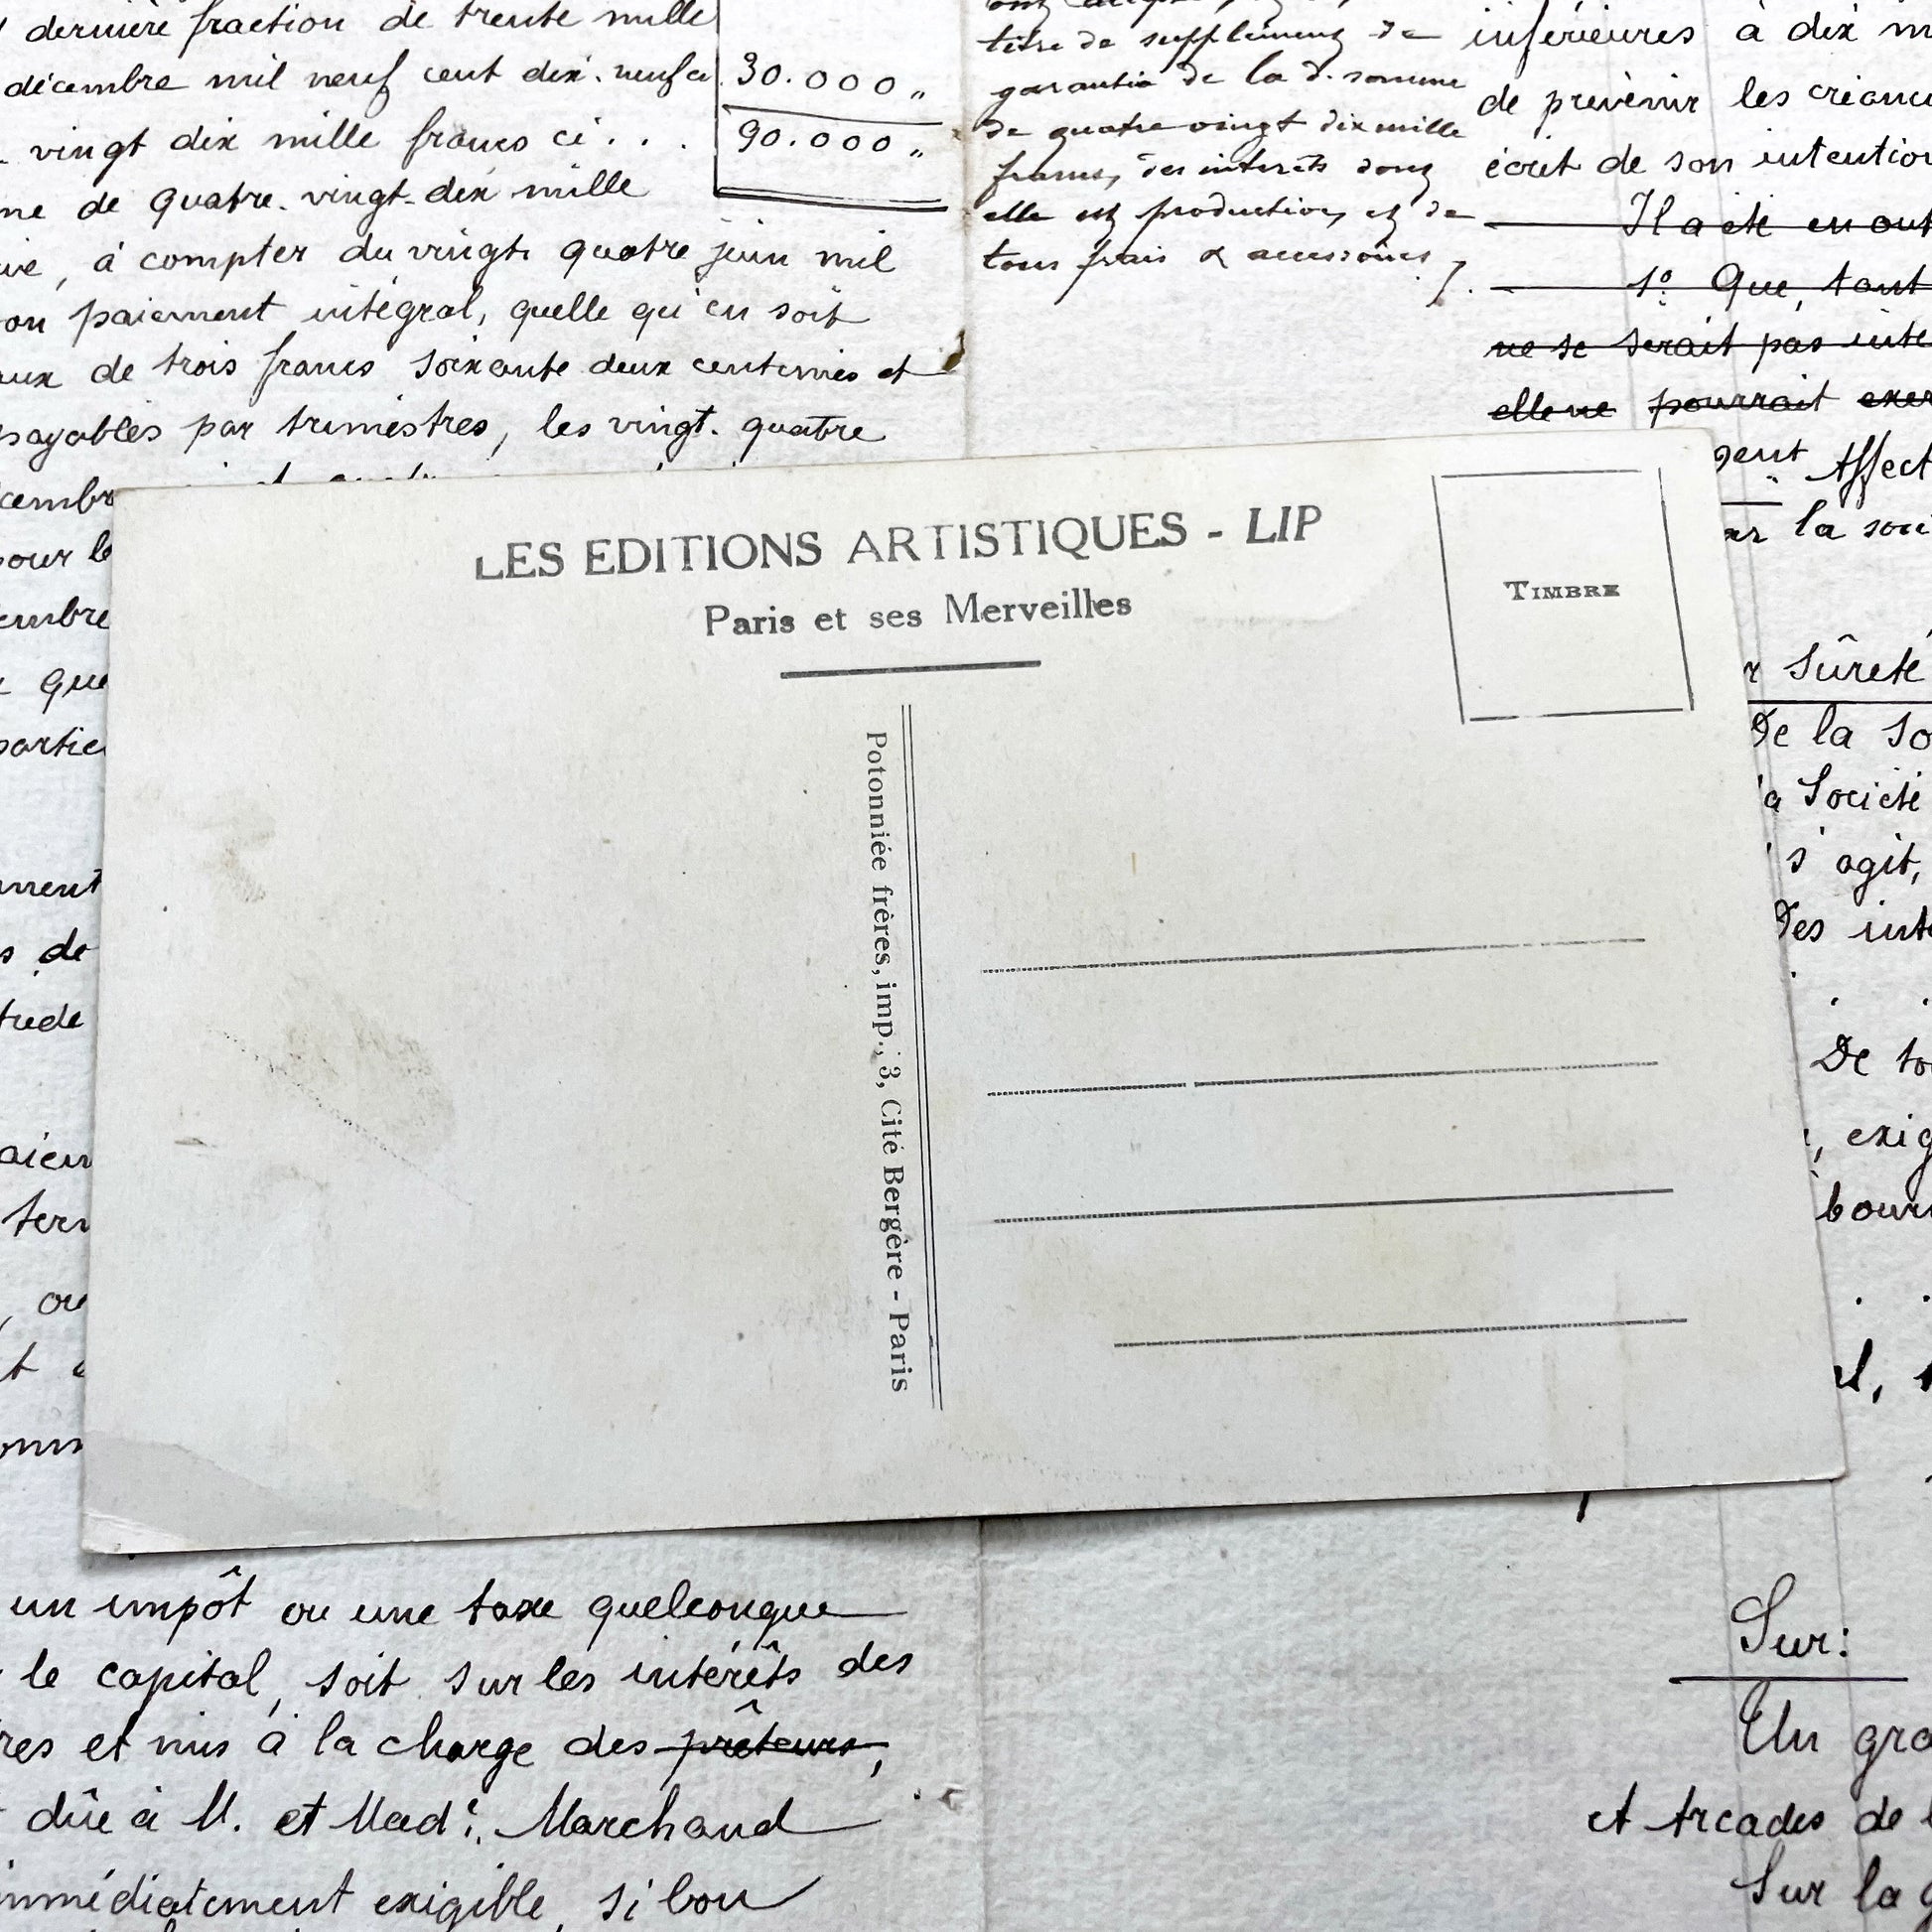 dernière fraction de trente mille
décembre mil neuf cent dix-neuf ci 30.000 "
vingt dix mille francs ci . . . 90.000 "
de quatre-vingt-dix mille
à compter du vingt quatre juin mil
paiement intégral, quelle qu'en soit
de trois francs soixante deux centimes et
par trimestres, les vingt-quatre
titre de supplément de
garantie de la d. somme
de quatre vingt dix mille
francs, des intérêts dont
elle est production, et de
tous frais & accessoires
inférieures à dix
de prévenir les
écrit de son
Il a été en
1º Que, tant
ne se serait pas
elle ne pourrait
Affect
la
LES EDITIONS ARTISTIQUES - LIP
Paris et ses Merveilles
TIMBRE
Potonniée frères, imp., 3, Cité Bergère - Paris
pour
que
de
sûreté
De la
Société
s'agit,
Des
De
un impôt ou une taxe quelconque
le capital, soit sur les intérêts des
et mis à la charge des prêteurs,
dûe à M. et Made Marchand
immédiatement exigible, si bon
Sur:
Un
et Arcades de
Sur la